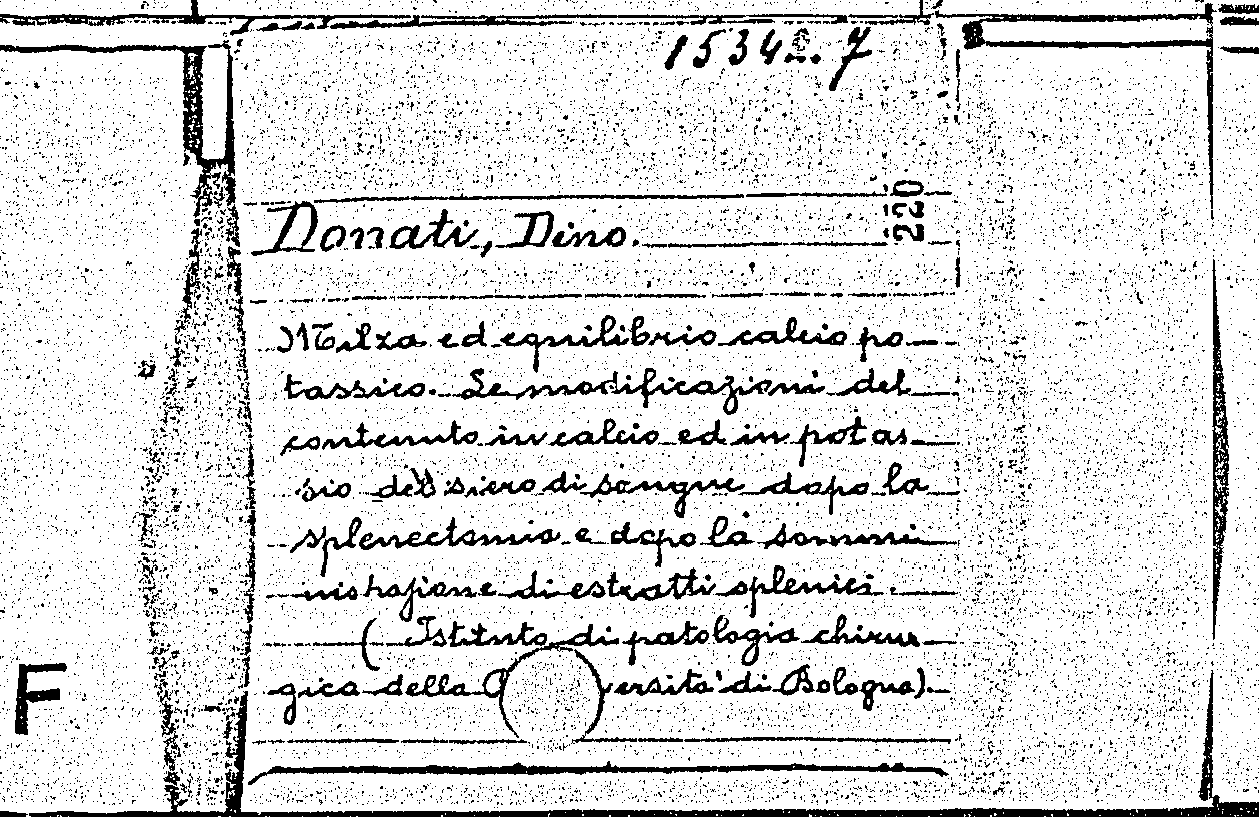 15342.7
220
Donati, Dino.
Milza ed equilibrio calcio po-
tassico. Le modificazioni del
contenuto in calcio ed in potas-
sio del siero di sangue dopo la
splenectomia e dopo la sommi
nistrazione di estratti splenici.
( Istituto di patologia chirur
gica della versità di Bologna).
F